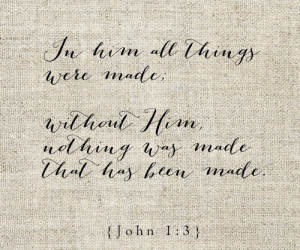 In him all things
were made;
without Him,
nothing was made
that has been made.
{John 1:3}